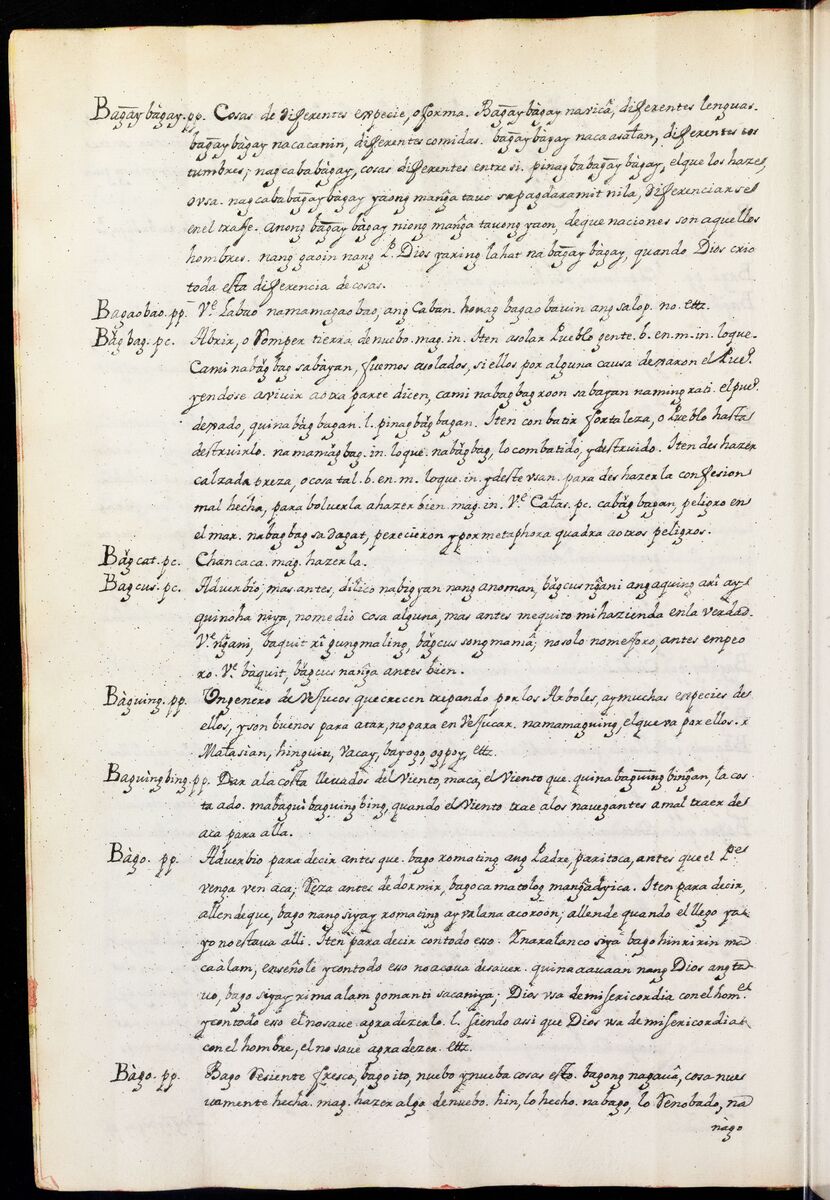 Bag̃ay bàgay. pp. Cosas de diferentes especie, o forma. Bag̃ay bàgay na vicâ, diferentes lenguas.
bag̃ay bàgay na cacanin, diferentes comidas. bag̃ay bàgay na ca asalan, diferentes cos
tumbres; nag cababàgay, cosas diferentes entre si. pinag babag̃ay bàgay, el que los haze,
o vsa. nag cababag̃ay bàgay yaong mang̃a tavo sa pag daramit nila, diferenciar se
en el traxe. anong bag̃ay bàgay niong mang̃a tavong yaon, de que naciones son aquellos
hombres. nang gaoin nang P. Dios yaring lahat na bag̃ay bàgay, quando Dios crio
toda esta diferencia de cosas.
Bagaobao. pp. Vᵉ Labao namamagaobao, ang Caban. houag bagaobauin ang salop. no. ettz.
Băg bag. pc. Abrir, o Romper tierra de nuebo. mag. in. Iten asolar Pueblo gente. b. en. m-in. loque.
Cami nabăgbag sa bàyan, fuemos asolados, si ellos por alguna causa dexaron el Pueº.
yendose a vivir a otra parte dicen, cami nabagbag roon sa bayan naming rati. el pueº.
dexado, quina băgbagan. l. pinagbăgbagan. Iten conbatir fortaleza, o Pueblo hasta
destruirlo. namamăgbag. in. loque. nabăgbag, lo combatido, y destruido. Iten des hazer
calzada preza, o cosa tal. b. en. m. loque. in. y deste vsan. para des hazer la confesion
mal hecha, para bolverla a hazer bien. mag. in. Vᵉ Calas. pc. cabăgbagan, peligro en
el mar. nabagbag sa dagat, perecieron y por metaphora quadra a otros peligros.
Băg cat. pc. Chancaca. mag. hazerla.
Bagcus. pc. Adverbio; mas antes, nabigyan nang anoman, băgcus ng̃ani ang aquing ari ay
quinoha niya, nome dió cosa alguna, mas antes mequito mi hazienda en la verdad.
Vᵉ. ng̃ani, baquit gungmaling, băgcus songmamâ; no solo no mejoro, antes empeo
ro. Vᵉ. bàquit, băgcus nang̃a antes bien.
Bàguing. pp. Un genero de Vejucos que crecen trepando por los Arboles, ay muchas especies de
ellos, y son buenos para atar, no para en Vejucar. namamaguing, el que va por ellos.
Malasian, hinguiu, vacay, bayogo, ogpoy, ettz.
Baguingbing. pp. Dar a la costa llevados del Viento, maca, el Viento que. quina bag̃uing bing̃an, la cos
ta ado. mabagui baguingbing, quando el Viento trae a los navegantes a mal traer de
aca para alla.
Bàgo. pp. Adverbio para decir antes que. bago romating ang Padre, paritoca, antes que el Pᵉ
venga ven aca; Reza antes de dormir, bago ca matolog mang̃adyica. Iten para decir,
allende que, bago nang siyay romating ay vala na aco roón; allende quando el llego ya
yo no estava alli. Iten para decir con todo esso. Ynaralan co siya bago hinrirín ma
caàlam, enseñele y con todo esso no acava de saver. quina aavaan nang Dios ang ta
vo, bago siyay rima alam gomanti sa caniya; Dios vsa de misericordia con el homᵉˡ
y con todo esso el no save agradezerlo. l. siendo assi que Dios vsa de misericordia
con el hombre, el no save agradezer. ettz.
Bàgo. pp. Bago Resiente fresco, bago ito, nuebo y nueba cosas esto. bagong nagauâ, cosa nue
vamente hecha. mag. hazer algo de nuebo. hin, lo hecho. nabago, lo Renobado, na
nàgo